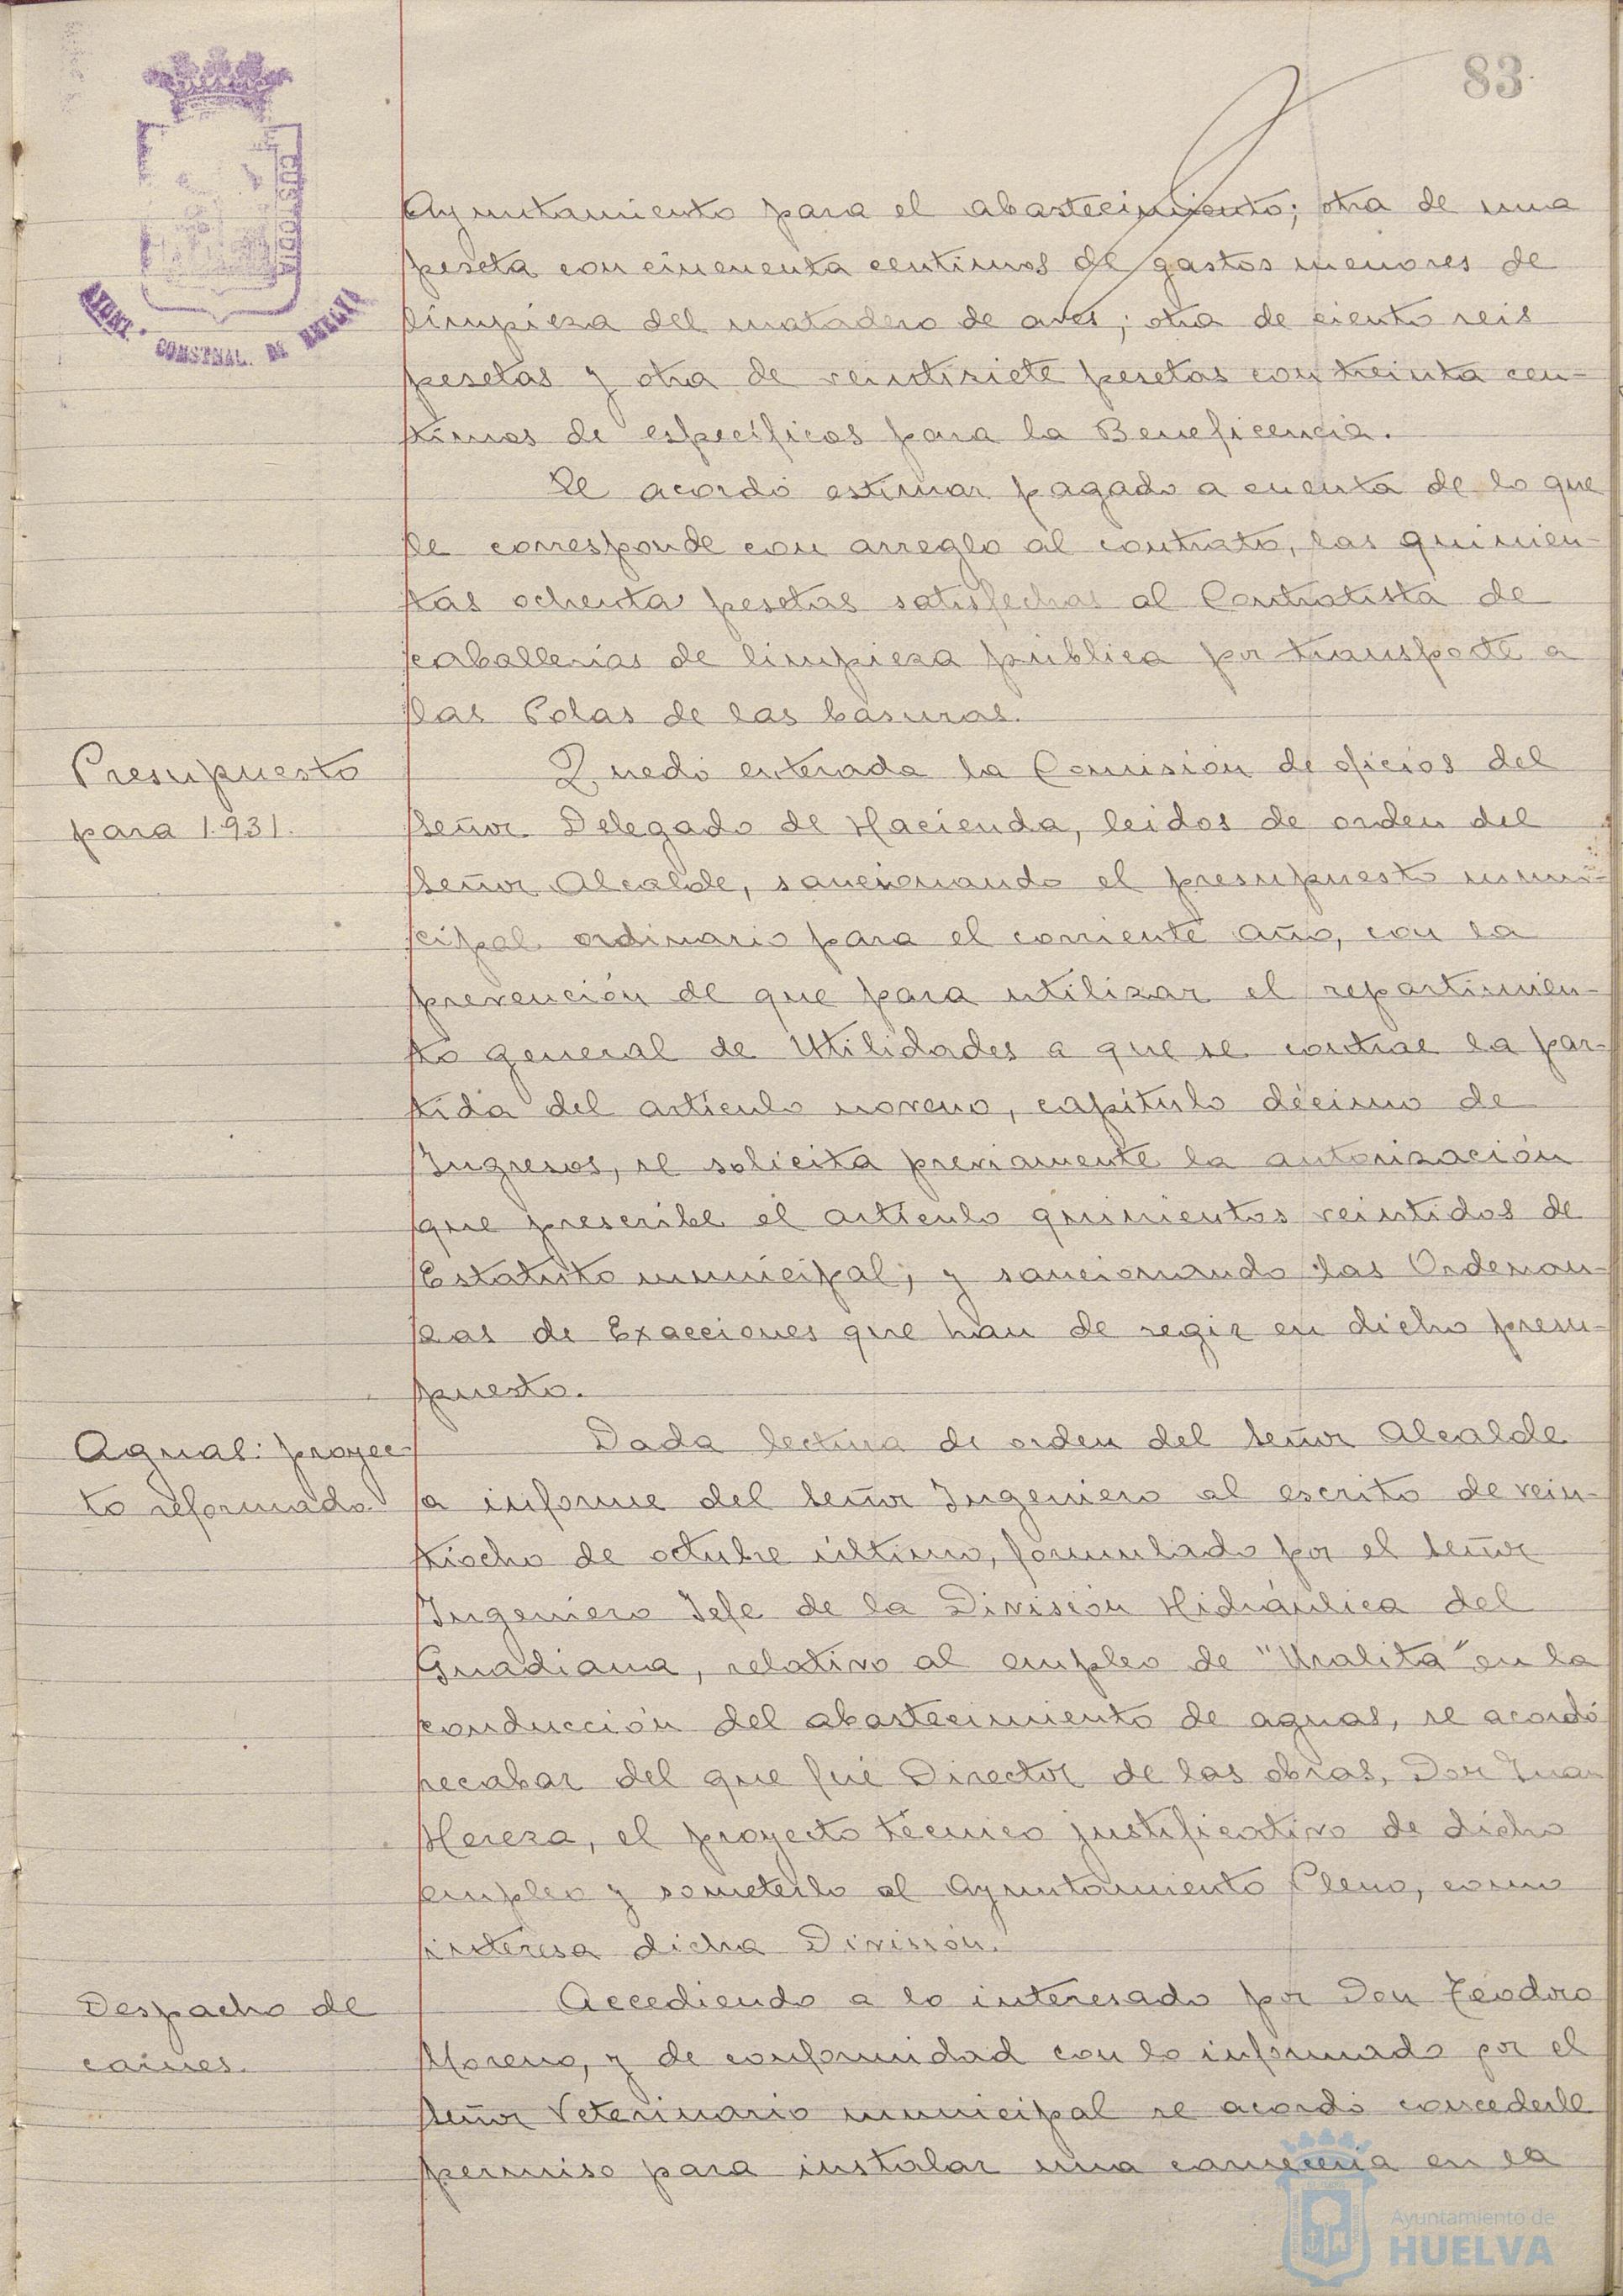 83
CUSTODIA
AYUNT. CONSTNAL. DE HUELVA
Ayuntamiento para el abastecimiento; otra de una
peseta con cincuenta centimos de gastos menores de
limpieza del matadero de aves; otra de ciento seis
pesetas y otra de veintisiete pesetas con treinta cen-
timos de específicos para la Beneficencia.
Se acordó estimar pagado a cuenta de lo que
le corresponde con arreglo al contrato, las quinien-
tas ochenta pesetas satisfechas al Contratista de
caballerías de limpieza pública por transporte a
las Colas de las basuras.
Presupuesto
para 1.931.
Quedó enterada la Comisión de oficios del
Señor Delegado de Hacienda, leidos de orden del
Señor Alcalde, sancionando el presupuesto muni-
cipal ordinario para el corriente año, con la
prevención de que para utilizar el repartimien-
to general de Utilidades a que se contrae la par-
tida del artículo noveno, capítulo décimo de
Ingresos, se solicita previamente la autorización
que prescribe el artículo quinientos veintidos de
Estatuto municipal; y sancionando las Ordenan-
zas de Exacciones que han de regir en dicho presu-
puesto.
Aguas: proyec-
to reformado
Dada lectura de orden del Señor Alcalde
a informe del Señor Ingeniero al escrito de vein-
tiocho de octubre último, formulado por el Señor
Ingeniero Jefe de la División Hidráulica del
Guadiana, relativo al empleo de "Uralita" en la
conducción del abastecimiento de aguas, se acordó
recabar del que fué Director de las obras, Don Juan
Hereza, el proyecto técnico justificativo de dicho
empleo y someterlo al Ayuntamiento Pleno, como
interesa dicha División.
Despacho de
carnes.
Accediendo a lo interesado por Don Teodoro
Moreno, y de conformidad con lo informado por el
Señor Veterinario municipal se acordó concederle
permiso para instalar una carnecería en la
Ayuntamiento de
HUELVA